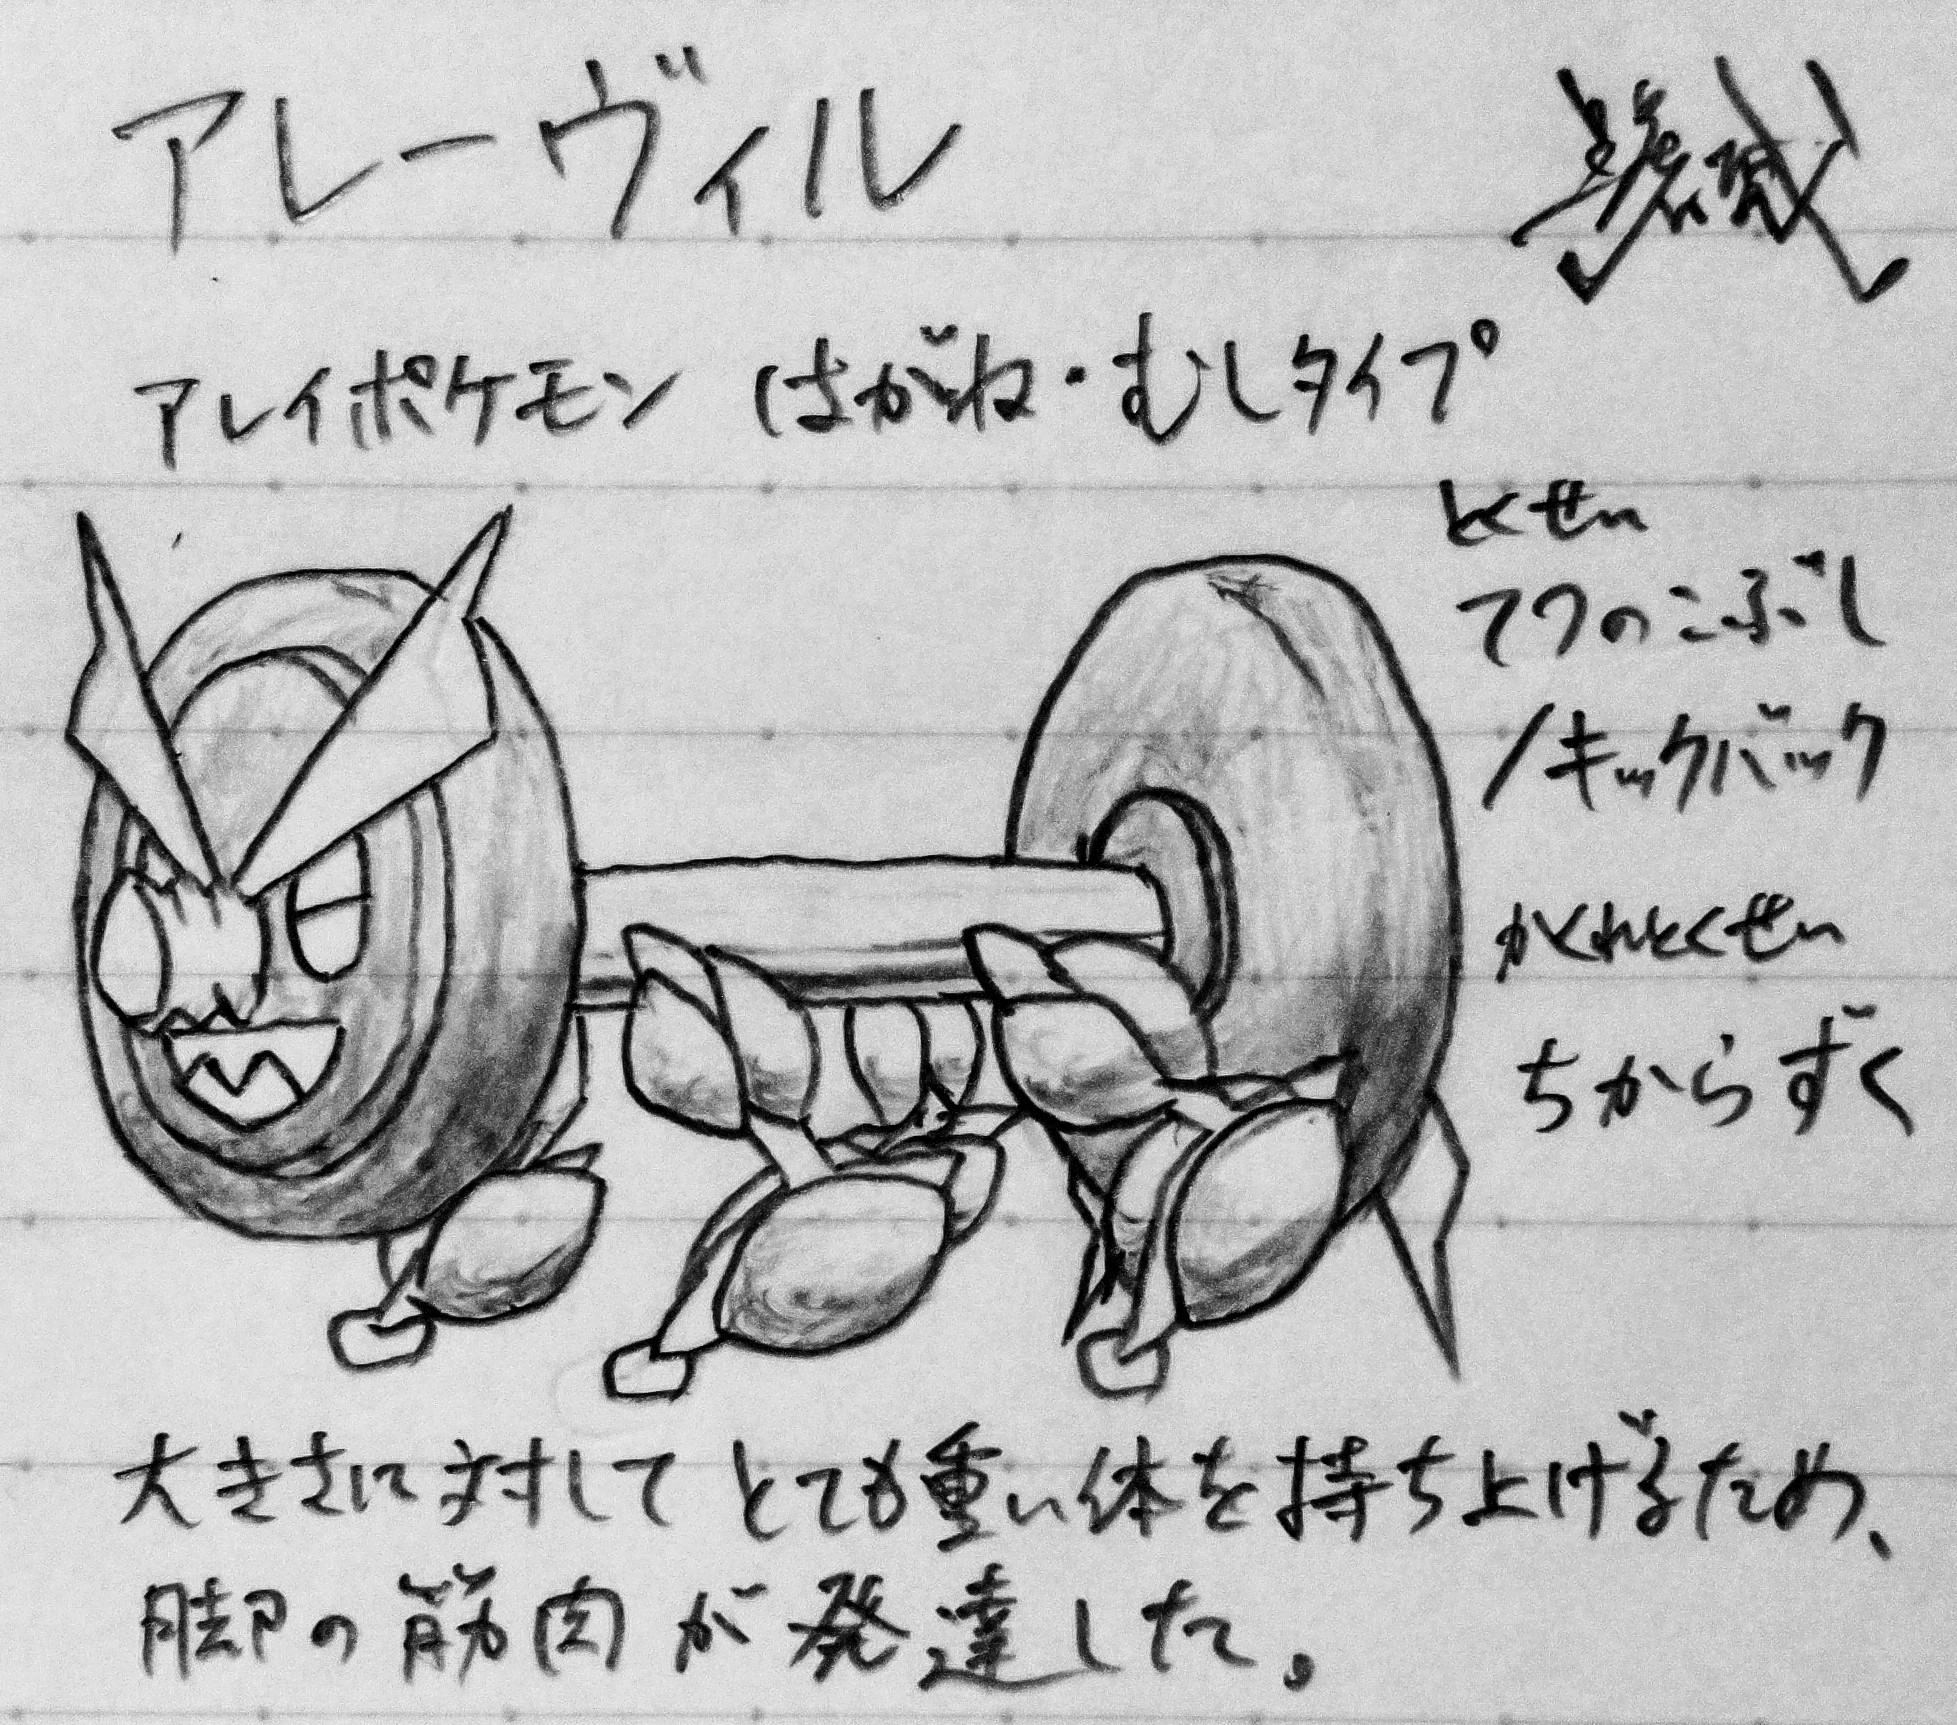 アレーヴィル
アレイポケモン はがね・むしタイプ
とくせい
てつのこぶし
/キックバック
かくれとくせい
ちからずく
大きさに対してとても重い体を持ち上げるため、
脚の筋肉が発達した。